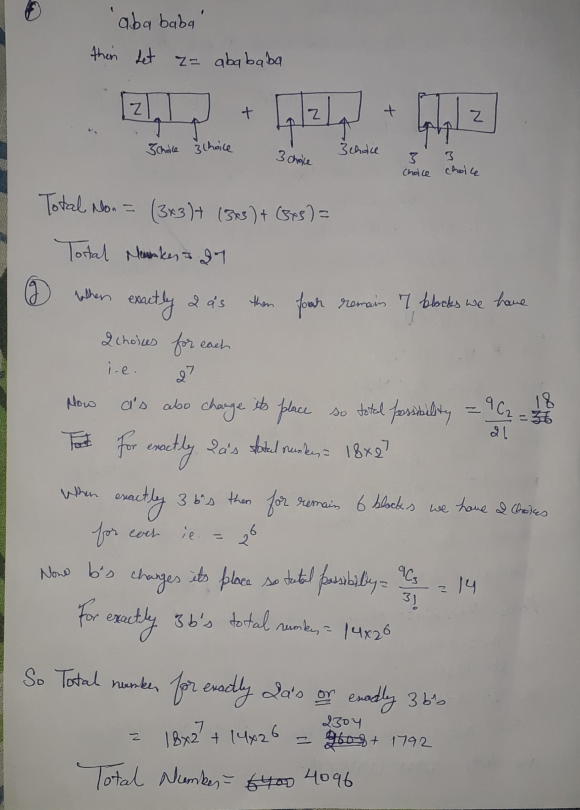 f
'aba baba'
then Let z = abababa
Z + Z + Z
3 choice 3 choice 3 choice 3 choice 3 choice 3 choice
Total No. = (3×3) + (3×3) + (3×3) =
Total Number = 27
g When exactly 2 a's then four remain 7 blocks we have
2 choices for each
i.e. 2^7
Now a's also change its place so total possibility = 9C2/2! = 18
For exactly 2a's total number = 18×2^7
When exactly 3 b's then for remain 6 blocks we have 2 choices
for each i.e. = 2^6
Now b's changes its place so total possibility = 9C3/3! = 14
For exactly 3b's total number = 14×2^6
So Total number for exactly 2a's or exactly 3b's
= 18×2^7 + 14×2^6 = 2304 + 1792
Total Number = 4096